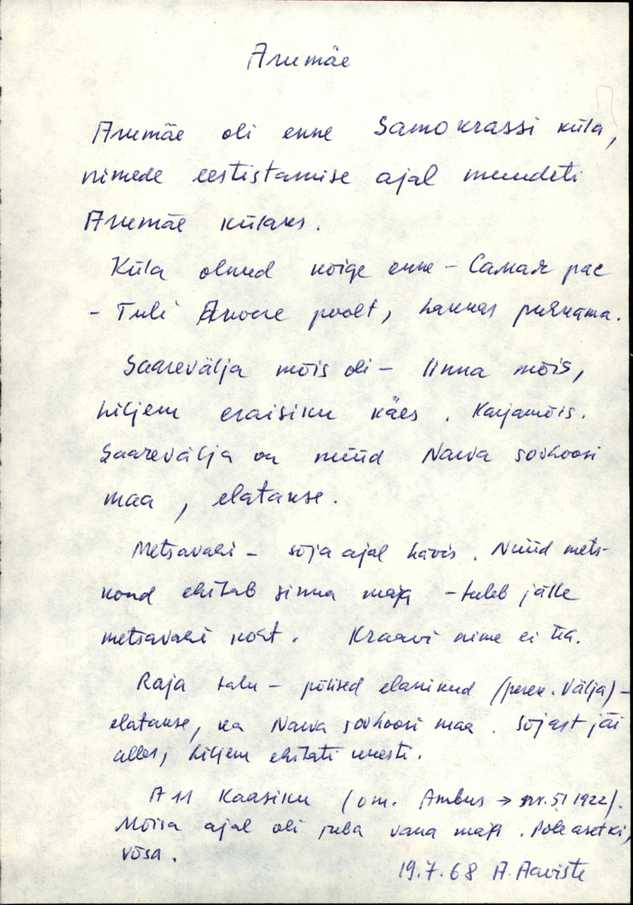 Arumäe
Arumäe oli enne Samokrassi küla,
nimede eestistamise ajal muudeti
Arumäe külaks.
Küla olnud kõige enne – Самый рас
– Tuli poolt, hakkas puhkama.
Saarevälja mõis oli – linna mõis,
hiljem eraisiku käes. Karjamõis.
Saarevälja on nüüd Narva sovhoosi
maa, elatakse.
Metsavahi – sõja ajal hävis. Nüüd mets-
kond ehitab sinna maja – tuleb jälle
metsavahi koht. Kraavi nime ei tea.
Raja talu – põlised elanikud (peren. Välja) –
elatakse, ka Narva sovhoosi maa. Sõjast jäi
alles, hiljem ehitati uuesti.
A 11 Kaasiku (om. Ambus → 51 1922).
Mõisa ajal oli juba vana maja. Pole asetki,
võsa.
19.7.68 A. Aaviste